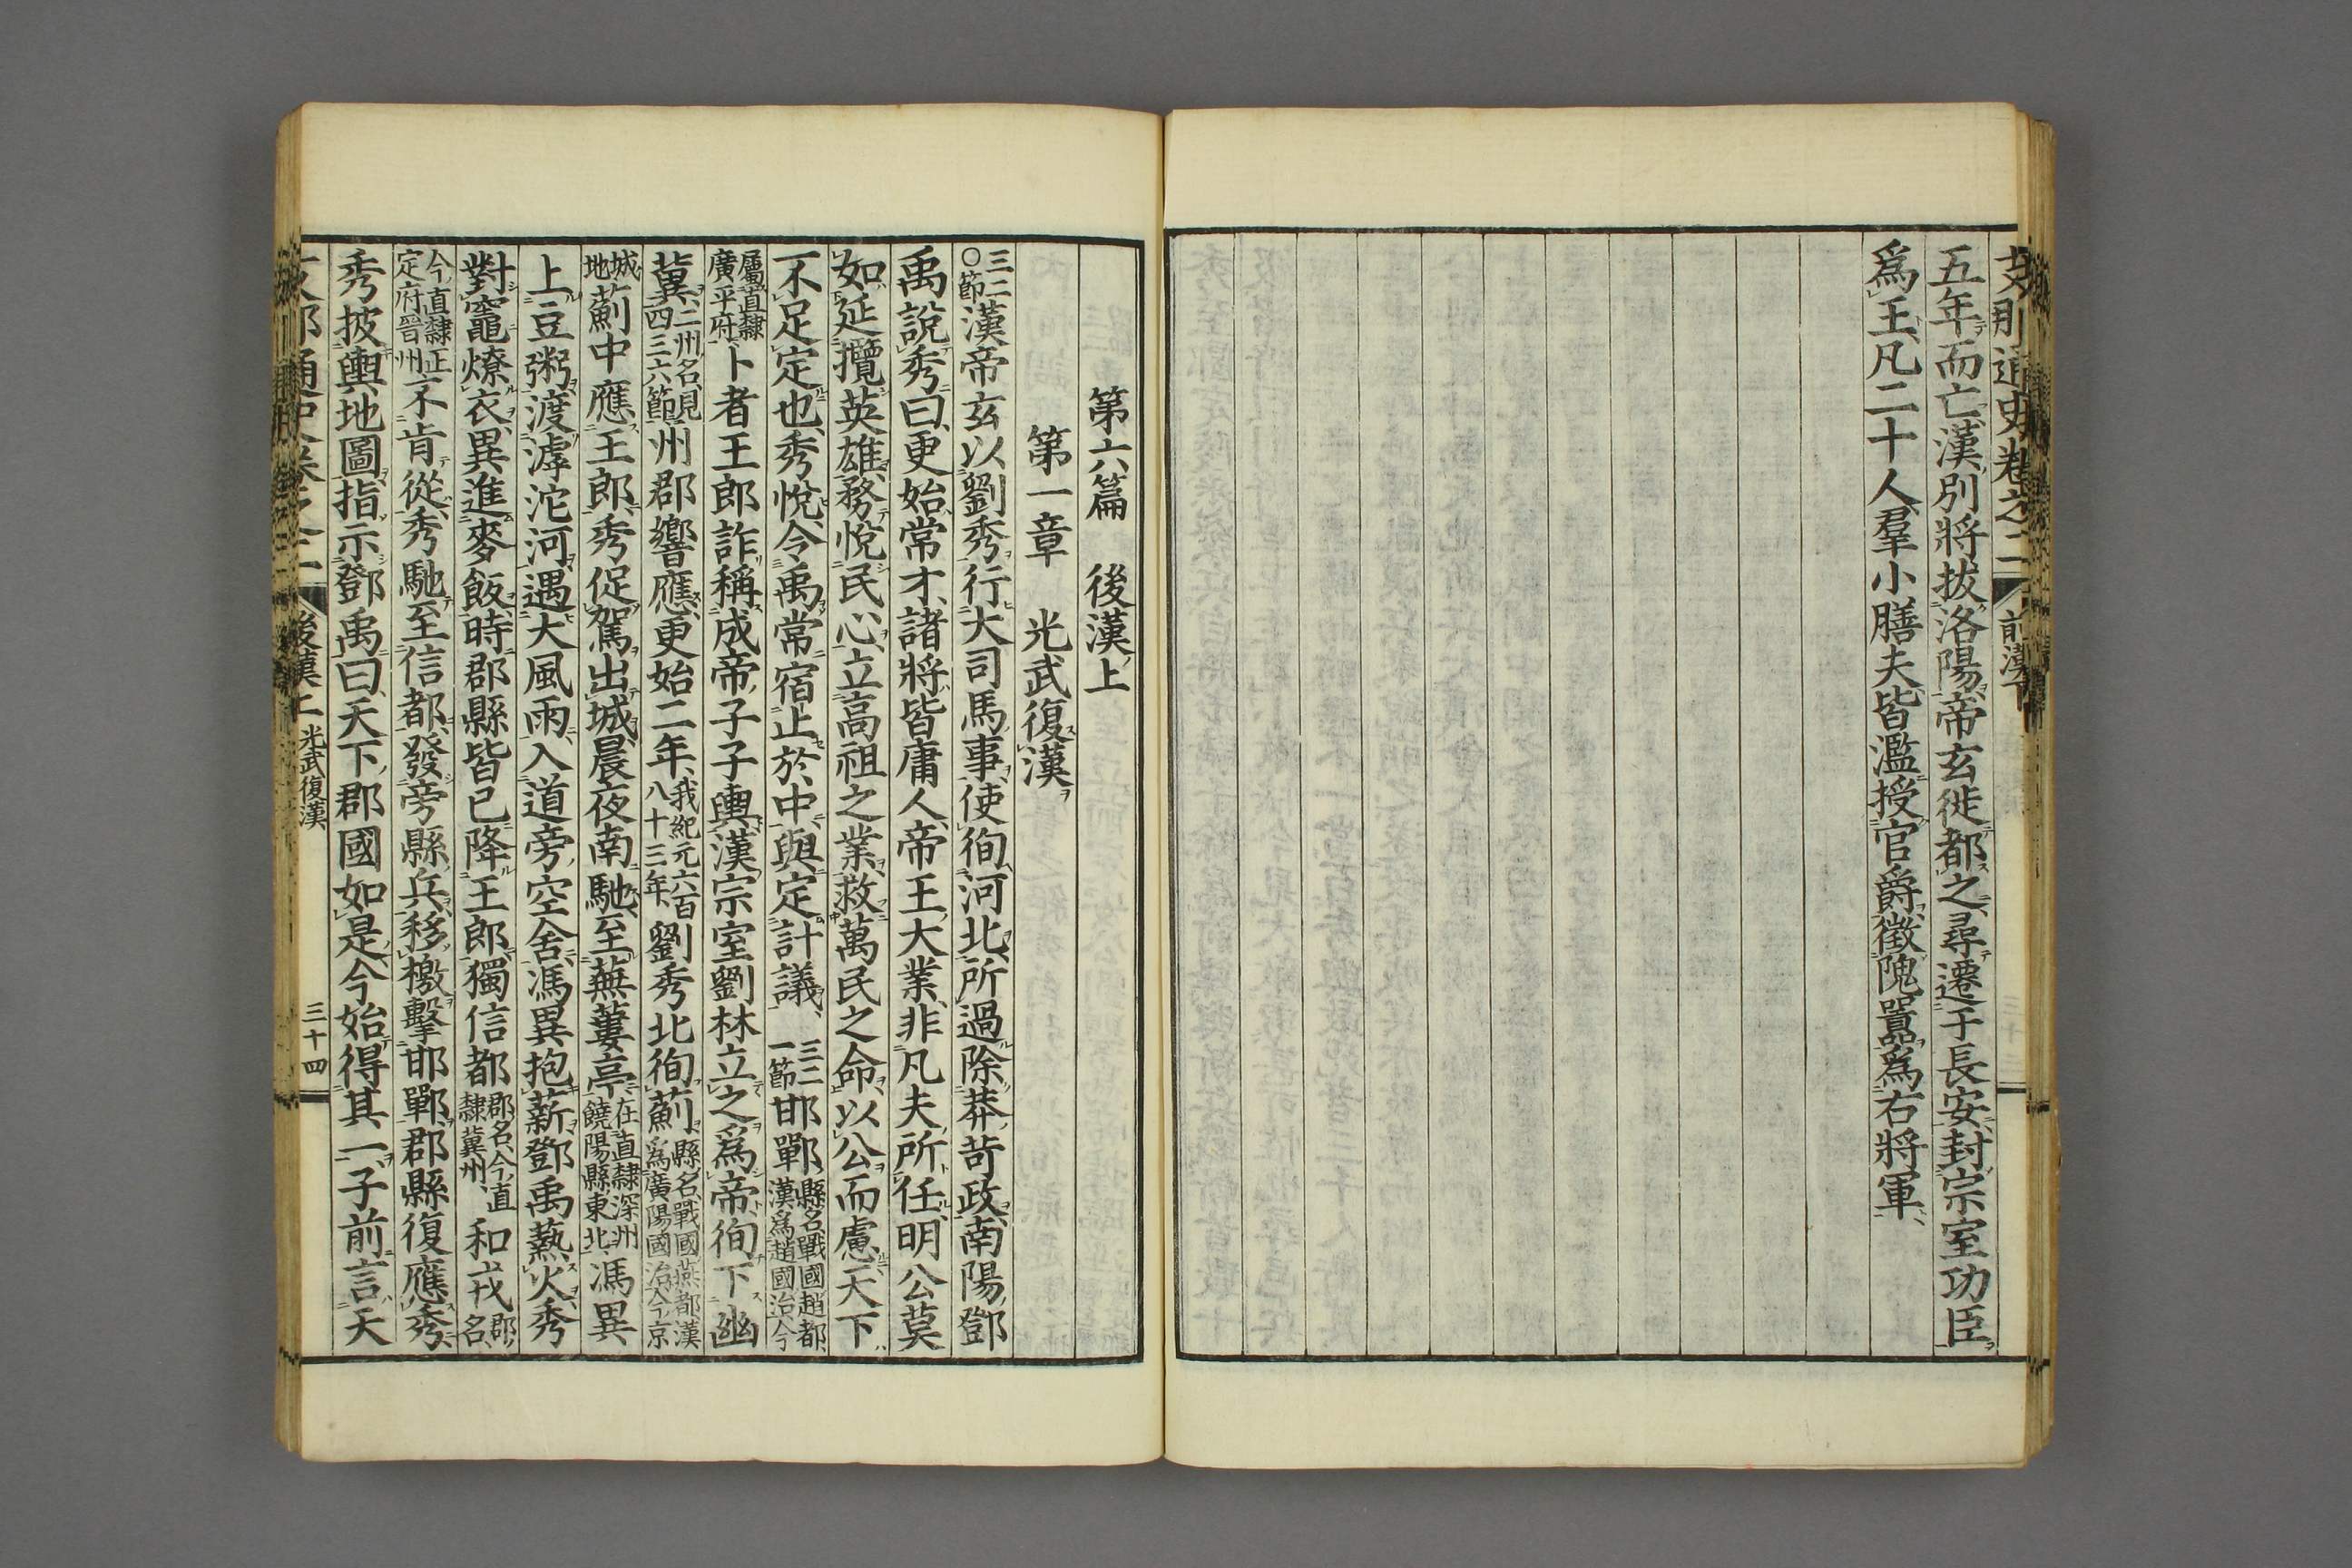 支那通史卷之二 前漢下
五年而亡、漢別將拔洛陽、帝玄徙都之、尋遷于長安、封宗室功臣
爲王、凡二十人、羣小膳夫、皆濫授官爵、徵隗囂爲右將軍、
第六篇 後漢上
第一章 光武復漢
三二〇節 漢帝玄以劉秀行大司馬事、使徇河北、所過除莽苛政、南陽鄧
禹說秀曰、更始常才、諸將皆庸人、帝王大業、非凡夫所任、明公莫
如延攬英雄、務悅民心、立高祖之業、救萬民之命、以公而慮、天下
不足定也、秀悅、令禹常宿止於中、與定計議、
三二一節 邯鄲縣名、戰國趙都、漢爲趙國治、今
屬直隸廣平府、卜者王郎、詐稱成帝子子輿、漢宗室劉林立之爲帝、徇下幽
冀、二州名、見四三六節、州郡響應、更始二年、我紀元六百八十三年、劉秀北徇薊、縣名、戰國燕都、漢爲廣陽國治、今京
城地、薊中應王郎、秀促駕出城、晨夜南馳、至蕪蔞亭、在直隸深州饒陽縣東北、馮異
上豆粥、渡滹沱河、遇大風雨、入道旁空舍、馮異抱薪、鄧禹爇火、秀
對竈燎衣、異進麥飯、時郡縣皆已降王郎、獨信都郡名、今直隸冀州、和戎郡名、
今直隸正定府晉州、不肯從、秀馳至信都、發旁縣兵、移檄擊邯鄲、郡縣復應秀、
秀披輿地圖、指示鄧禹曰、天下郡國如是、今始得其一、子前言天
後漢上 光武復漢 三十四